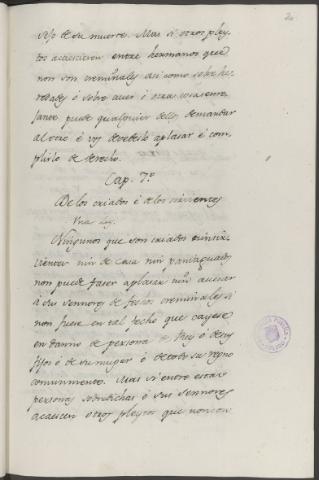 Rey o de su muerte. Mas si otros pley-
tos acaescieren entre hermanos que
non son creminales asi como sobre he-
redades ó sobre auer ó otra cosa seme-
jante, puede qualquier dellos demandar
al otro é
plirlo de derecho.
Cap. 7.º
De los criados é de los sirvientes
Una Ley.
Ningunos que son criados nin sir-
vientes nin de casa nin paniaguados
non puede facer aplazar nin acusar
á sus sennores de fechos creminales si
non fuere en tal fecho que cayese
en danno de persona de Rey ó de sus
fijos ó de su muger ó de todo su regno
comunmente. Mas si entre estas
personas sobredichas é sus sennores
acaescen otros pleytos que non son